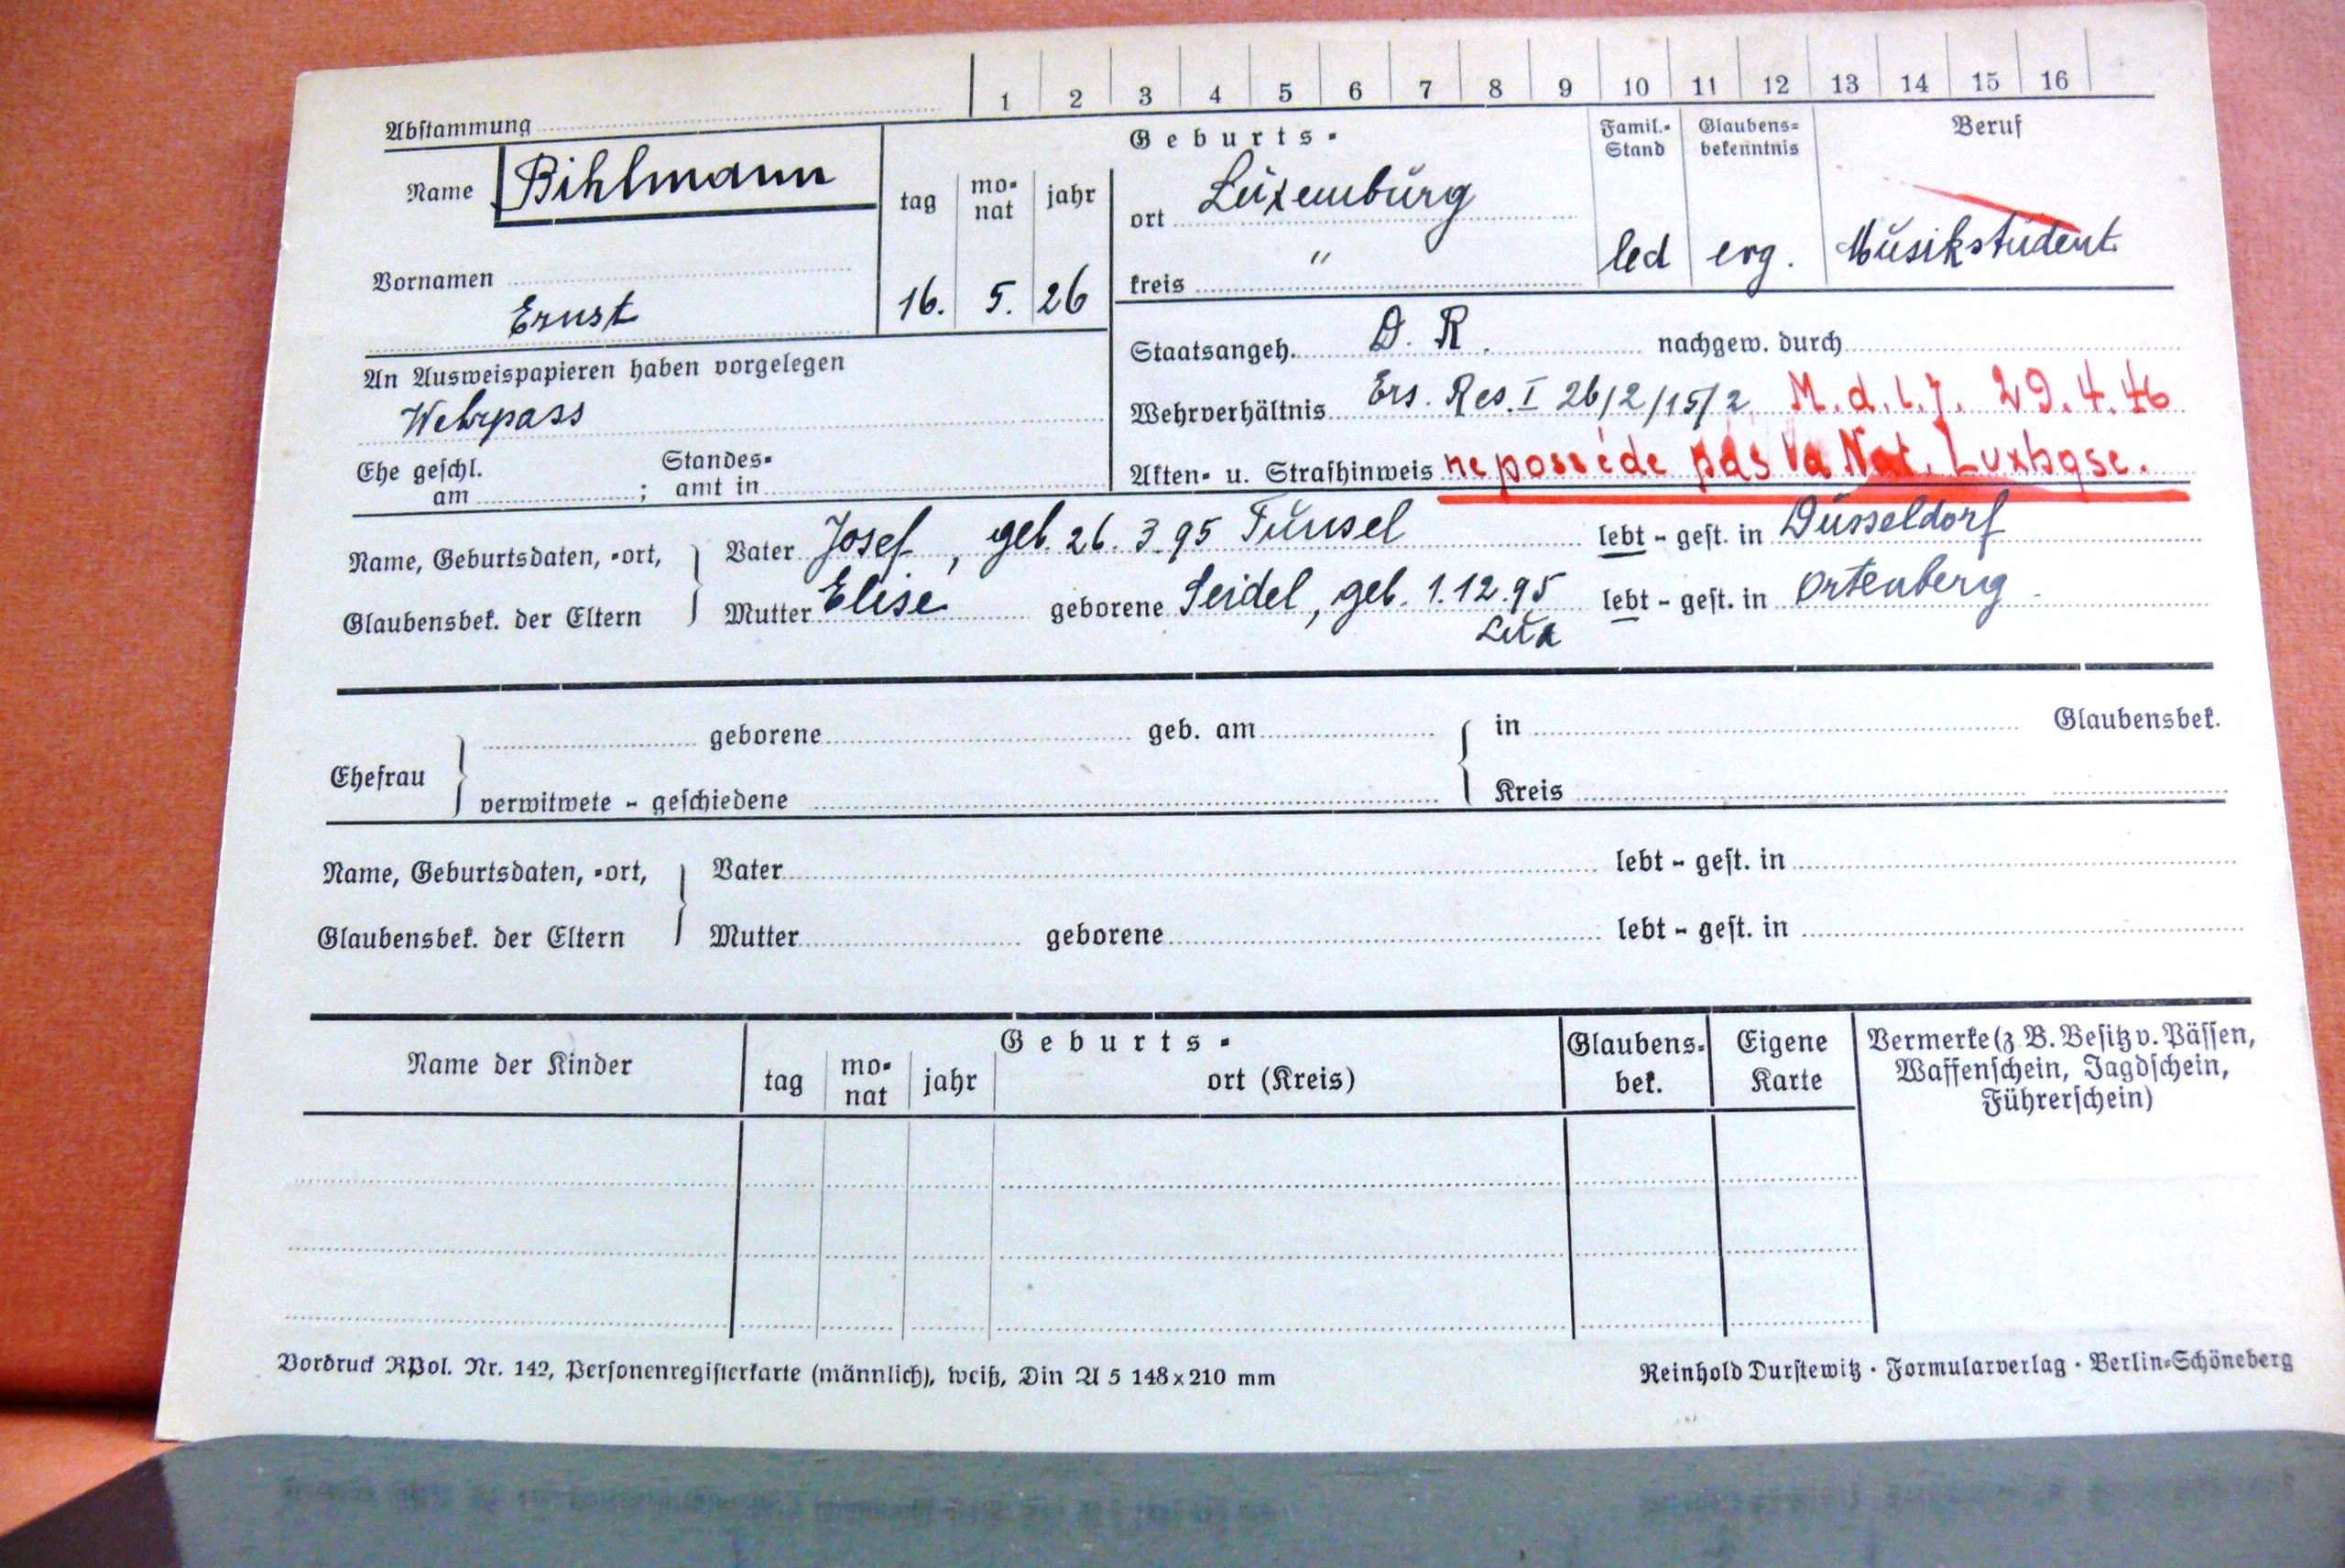 1 2 3 4 5 6 7 8 9 10 11 12 13 14 15 16
Abstammung
Name Bihlmann
Vornamen
Ernst
tag mo-nat jahr
16. 5. 26
Geburts-
ort Luxemburg
kreis "
Famil.-Stand
led
Glaubens-bekenntnis
evg.
Beruf
Musikstudent.
An Ausweispapieren haben vorgelegen
Wehrpass
Ehe geschl. am ; Standes-amt in
Staatsangeh. D. R. nachgew. durch
Wehrverhältnis Ers. Res. I 26/2/15/2 M. d. l. J. 29.4.46
Akten- u. Strafhinweis ne possède pas la Nat. Luxbgse.
Name, Geburtsdaten, -ort,
Glaubensbek. der Eltern
Vater Josef, geb. 26. 3. 95 Tunsel lebt - gest. in Düsseldorf
Mutter Elise geborene Seidel, geb. 1.12.95 lebt - gest. in Ortenberg
Lux
Ehefrau
geborene geb. am in Glaubensbek.
verwitwete - geschiedene Kreis
Name, Geburtsdaten, -ort,
Glaubensbek. der Eltern
Vater lebt - gest. in
Mutter geborene lebt - gest. in
Name der Kinder
Geburts-
tag mo-nat jahr ort (Kreis)
Glaubens-bek.
Eigene Karte
Vermerke (z. B. Besitz v. Pässen,
Waffenschein, Jagdschein,
Führerschein)
Vordruck RPol. Nr. 142, Personenregisterkarte (männlich), weiß, Din A 5 148x210 mm
Reinhold Durstewitz · Formularverlag · Berlin-Schöneberg